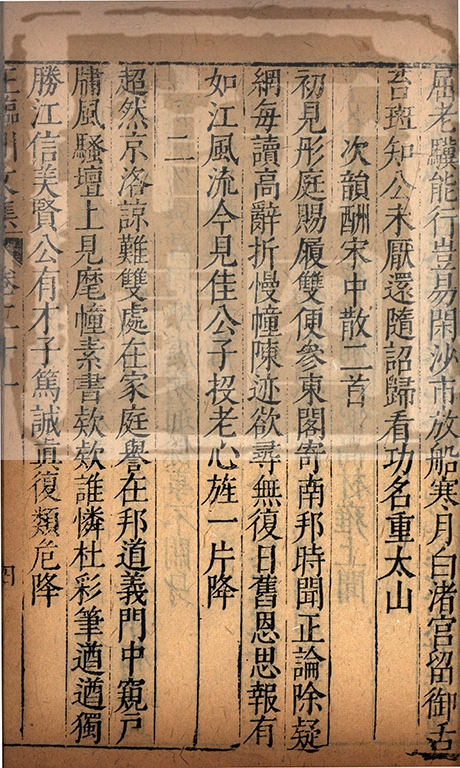 屈老驥能行豈易閑沙市放船寒月白渚宮留御古
苔斑知公未厭還隨詔歸看功名重太山
次韻酬宋中散二首
初見彤庭賜履雙便參東閣寄南邦時聞正論除疑
網每讀高辭折慢幢陳迹欲尋無復日舊恩思報有
如江風流今見佳公子投老心旌一片降
二
超然京洛諒難雙處在家庭譽在邦道義門中窺戸
牖風騷壇上見麾幢素書款款誰憐杜彩筆遒遒獨
勝江信美賢公有才子篤誠真復類危降
王臨川文集 卷二十一 四